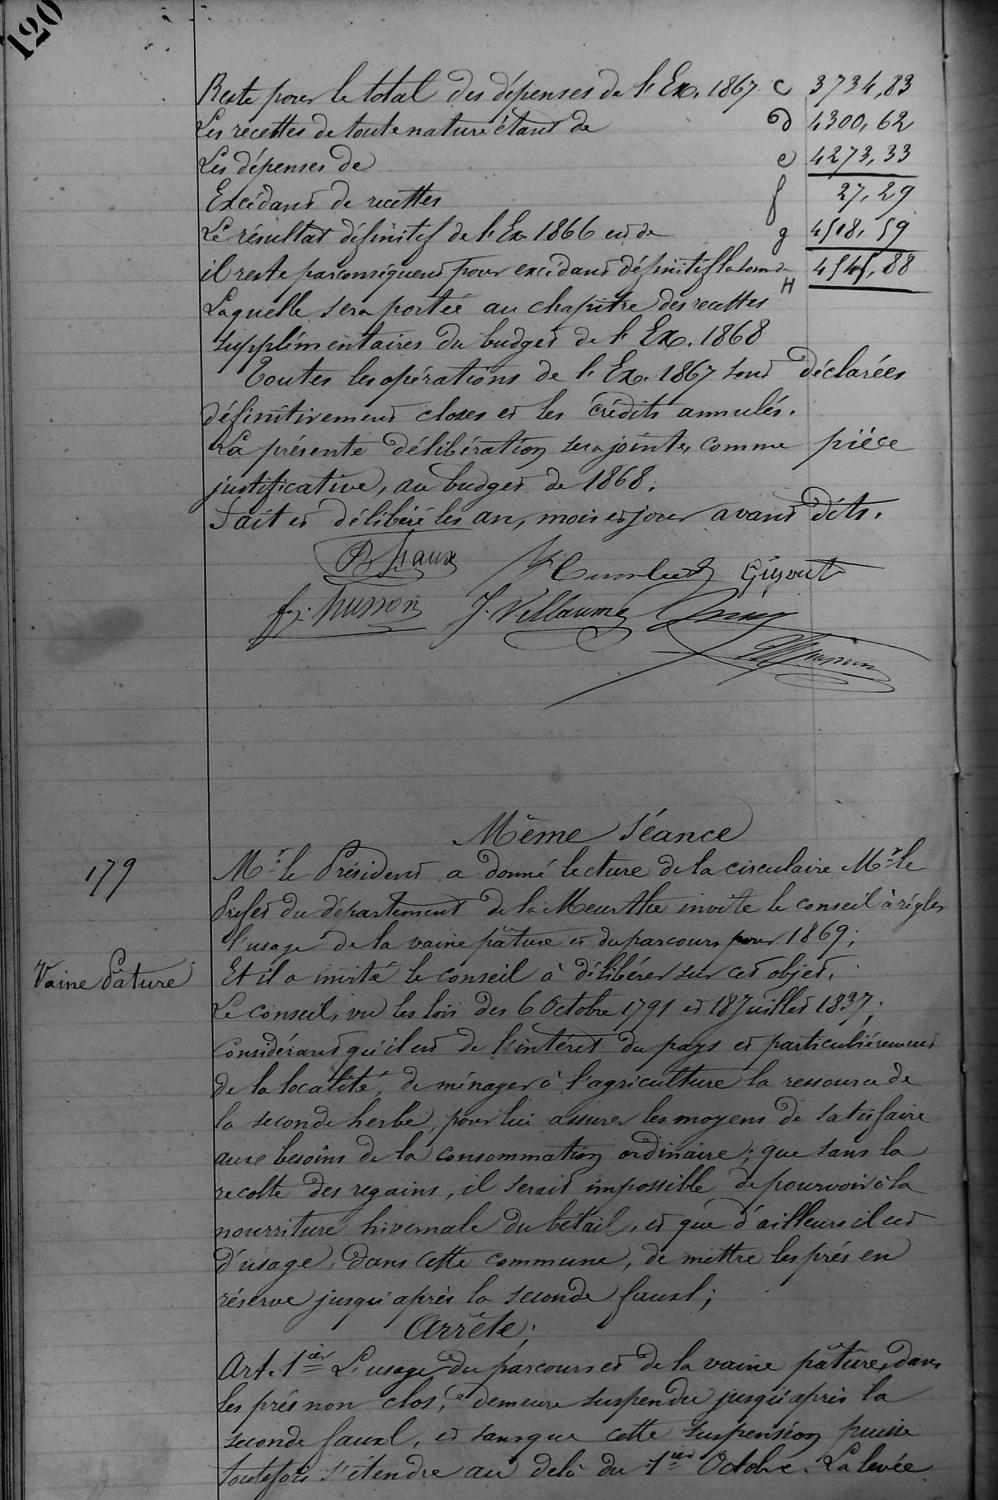 120
Reste pour le total des dépenses de l'Ex. 1867 c 3734,83
Les recettes de toute nature étant de d 4300,62
Les dépenses de e 4273,33
Excédant de recettes f 27,29
Le résultat définitif de l'Ex. 1866 est de g 4518,59
il reste par conséquent pour excédant définitif la som de H 4545,88
Laquelle sera portée au chapitre des recettes
supplémentaires du budget de l'Ex. 1868
Toutes les opérations de l'Ex. 1867 sont déclarées
définitivement closes et les crédits annulés.
La présente délibération sera jointe, comme pièce
justificative, au budget de 1868.
Fait et délibéré les an, mois et jour avant dits.
Humbert
f. j. husson J. Villaume
Même Séance
179
Mr. le Président a donné lecture de la circulaire Mr. le
Préfet du département de la Meurthe invite le conseil à régler
l'usage de la vaine pâture et du parcours pour 1869;
Vaine Pâture
Et il a invité le conseil à délibérer sur cet objet.
Le conseil, vu les lois des 6 Octobre 1791 et 18 Juillet 1837;
Considérant qu'il est de l'intérêt du pays et particulièrement
de la localité, de ménager à l'agriculture la ressource de
la seconde herbe, pour lui assurer les moyens de satisfaire
aux besoins de la consommation ordinaire; que sans la
recolte des regains, il serait impossible de pourvoir à la
nourriture hivernale du bétail, et que d'ailleurs il est
d'usage, dans cette commune, de mettre les prés en
réserve jusqu'après la seconde faux;
Arrête;
Art. 1er L'usage du parcours et de la vaine pâture, dans
les prés non clos, demeure suspendu jusqu'après la
seconde faux, et sans que cette suspension puisse
toutefois s'étendre au delà du 1er Octobre. La levée